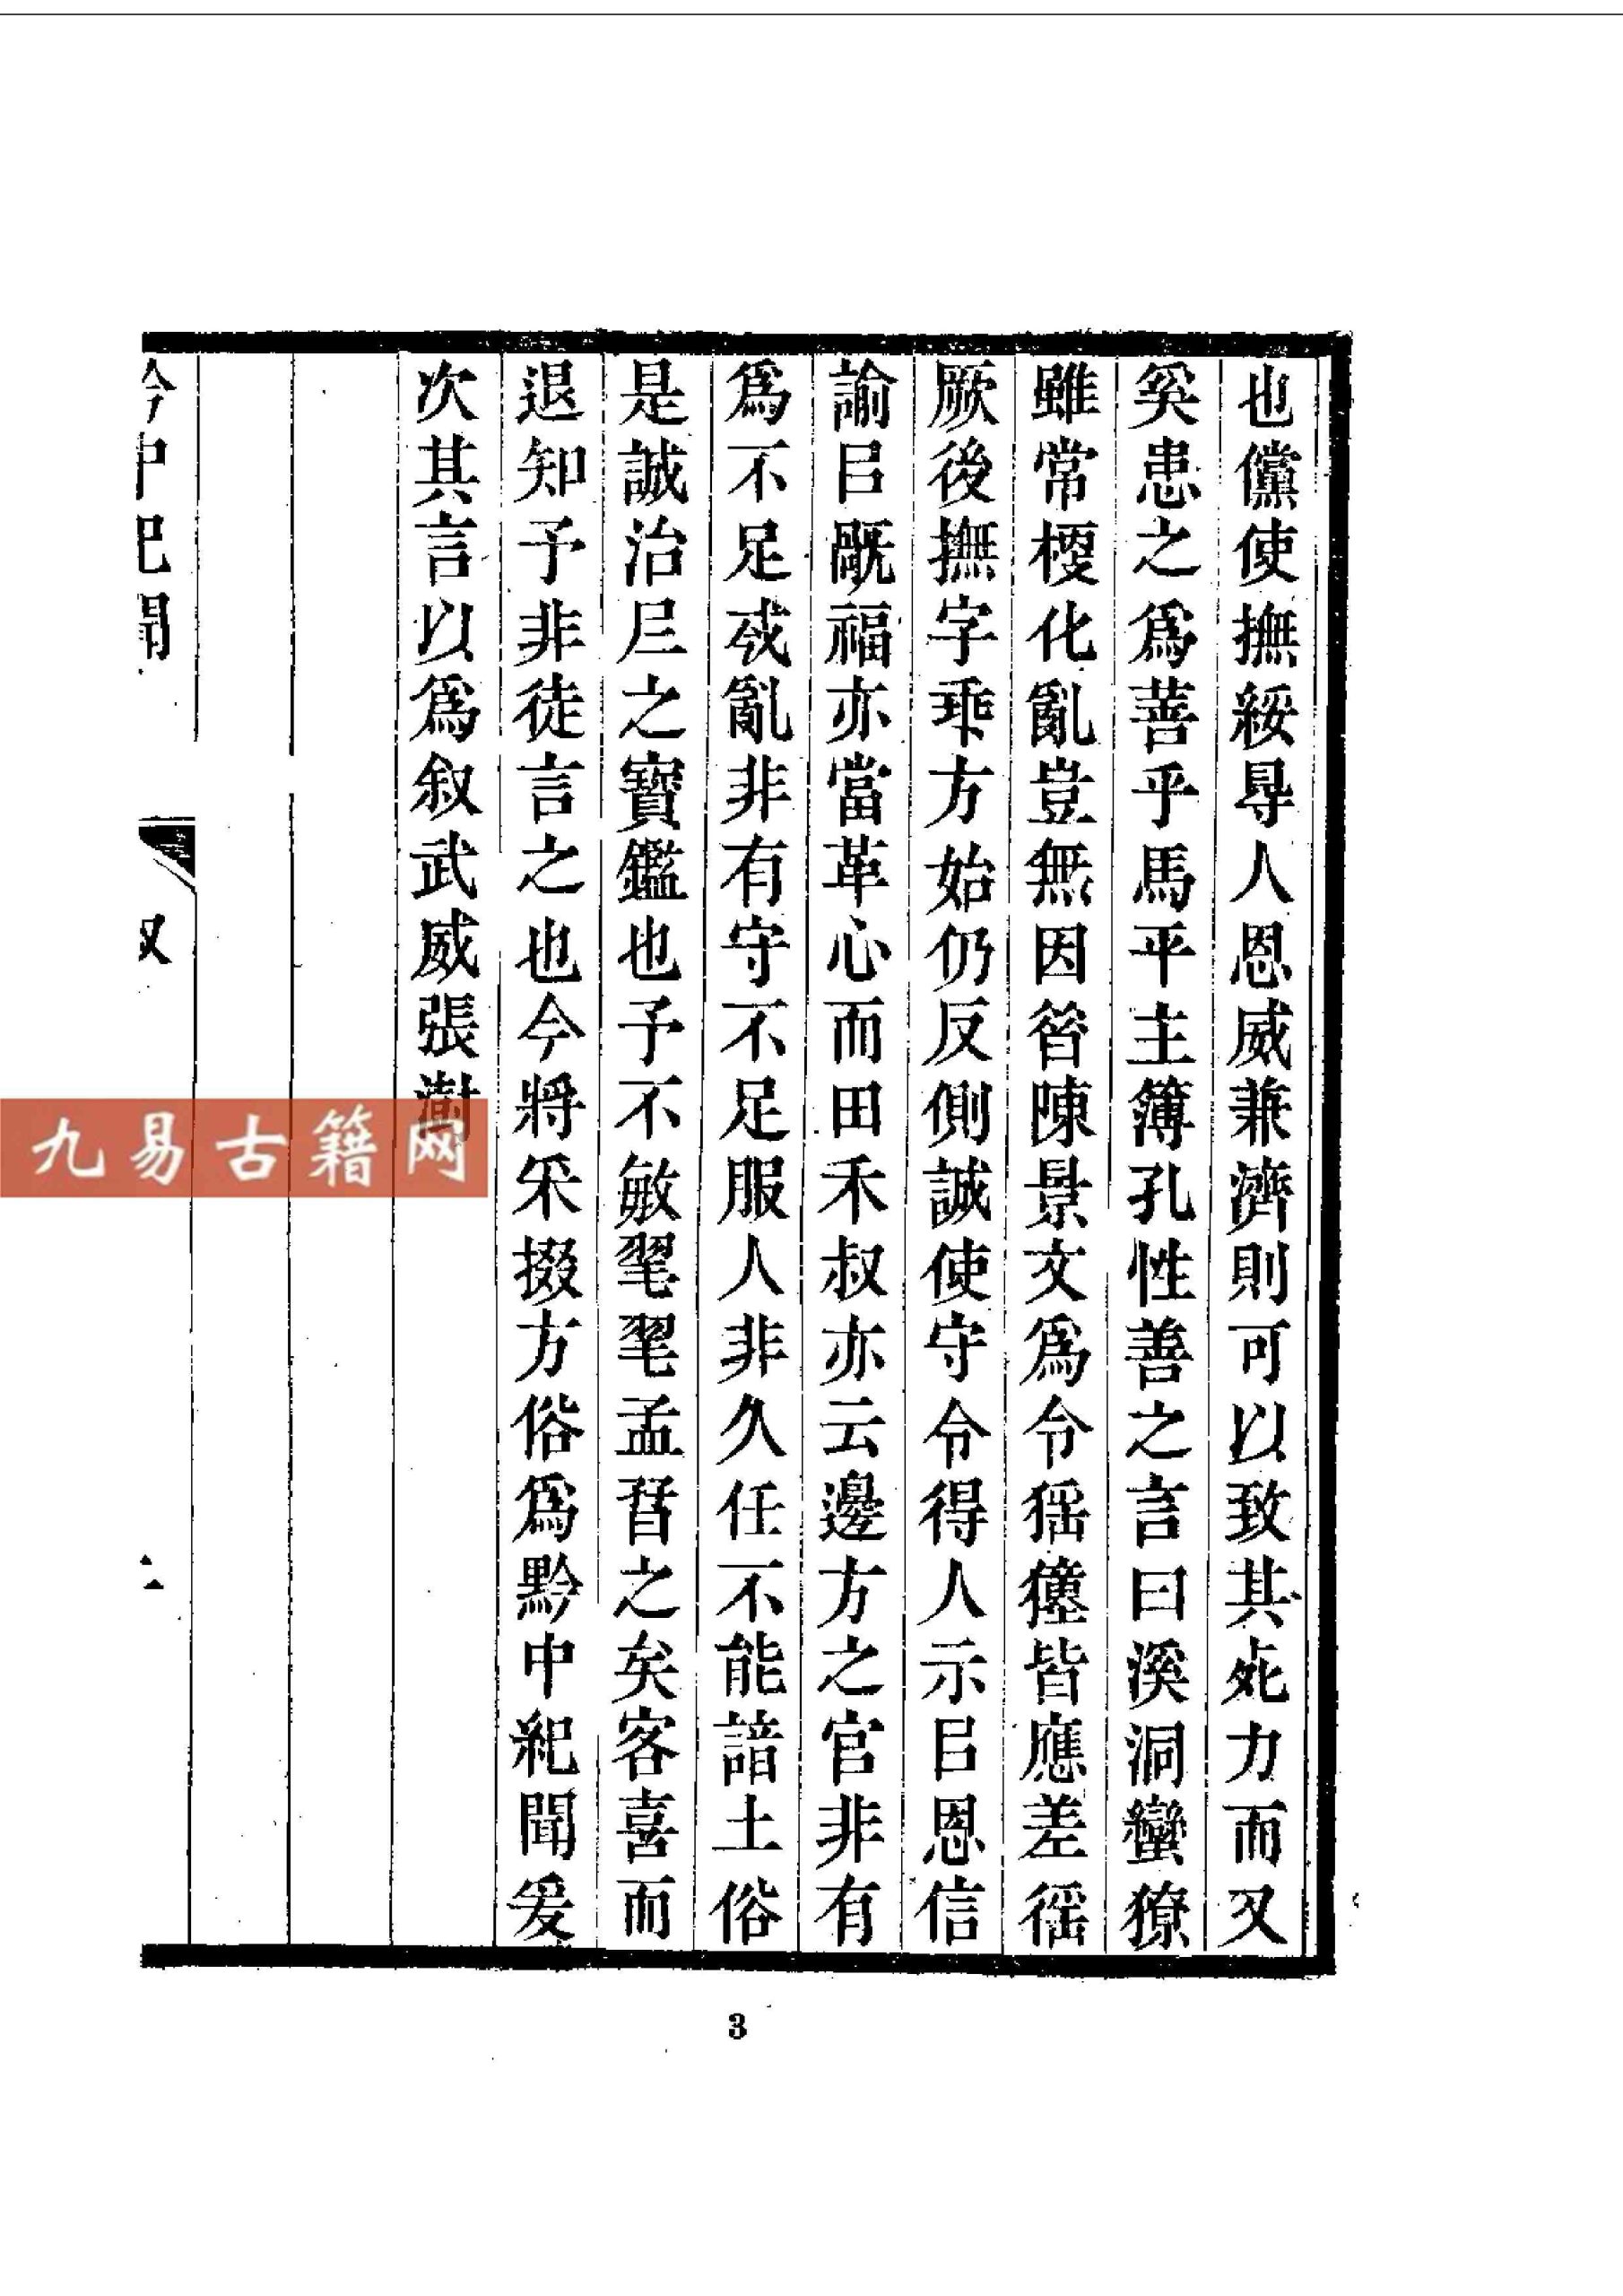 也儻使撫綏㝵人恩威兼濟則可以致其死力而又
奚患之爲善乎馬平主簿孔性善之言曰溪洞蠻獠
雖常梗化亂豈無因昝陳景文爲令猺獞皆應差徭
厥後撫字乖方始仍反側誠使守令得人示㠯恩信
諭㠯既福亦當革心而田禾叔亦云邊方之官非有
爲不足戓亂非有守不足服人非久任不能諳土俗
是誠治𡰥之寶鑑也予不敏毣毣孟晉之矣客喜而
退知予非徒言之也今將采掇方俗爲黔中紀聞爰
次其言以爲叙武威張澍
黔中紀聞
叙
二
九易古籍网
3